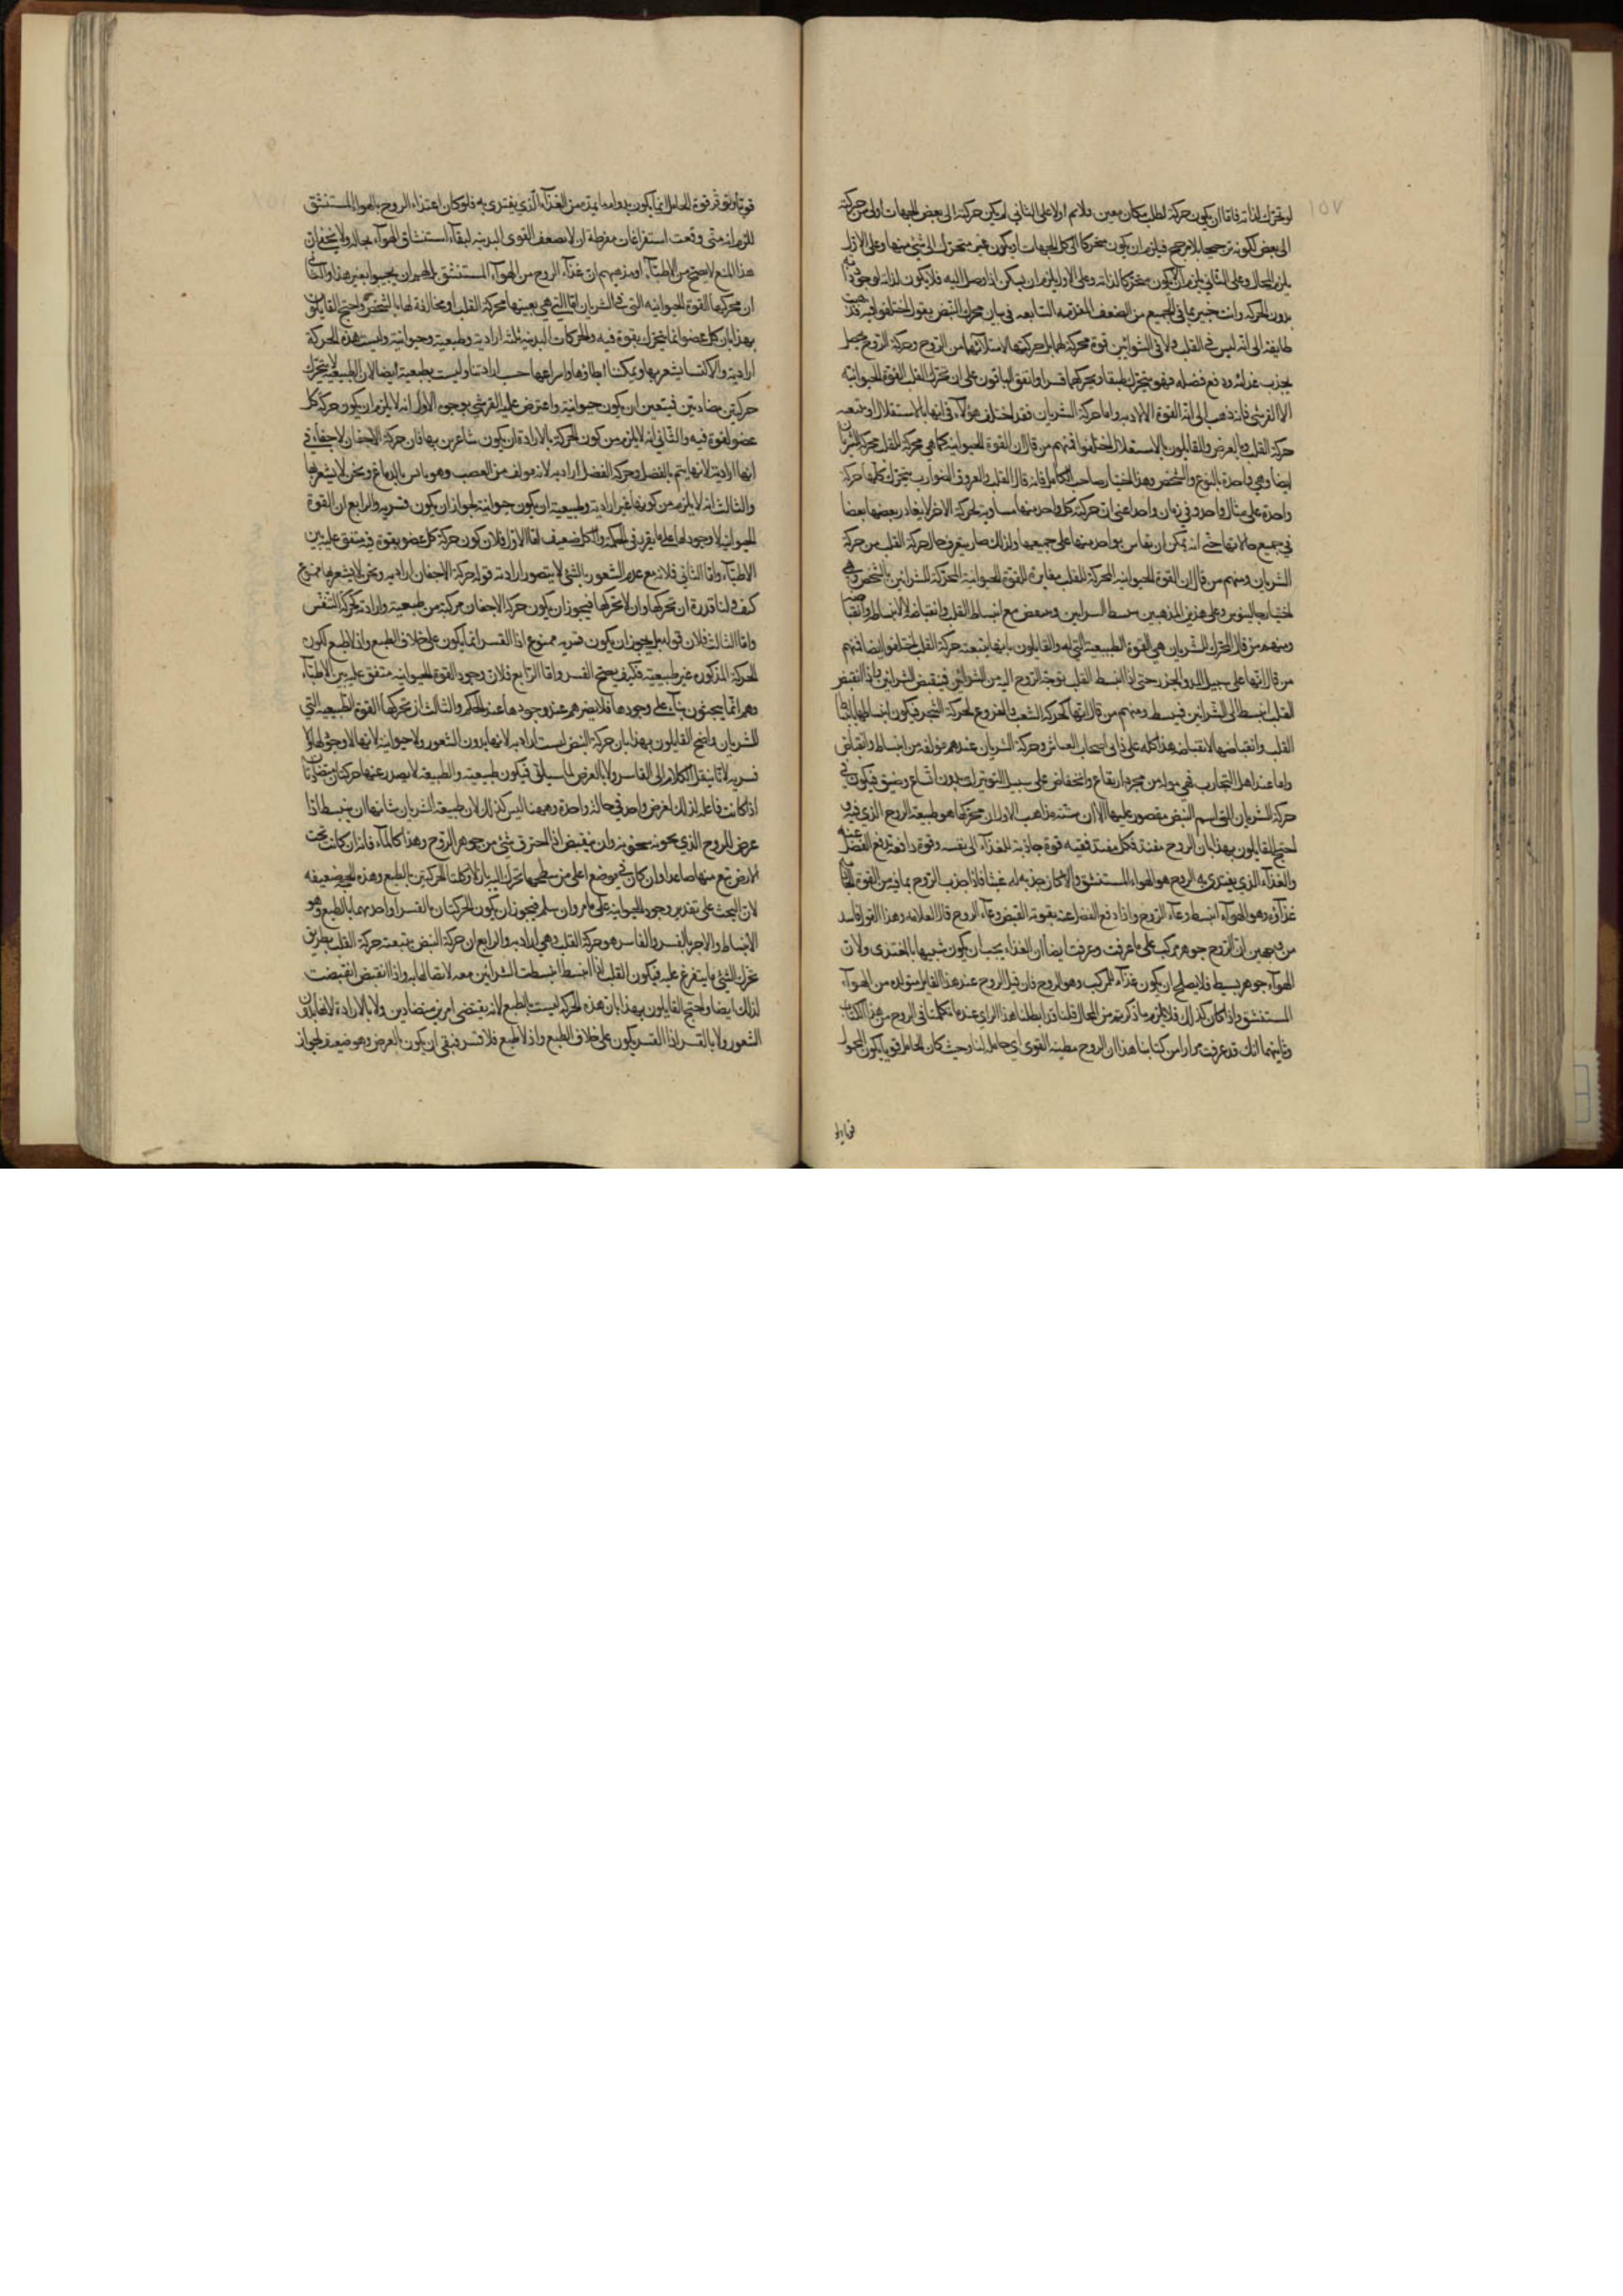 ١٥٧
لو تحرك لذاته فاما ان يكون حركته لطلب مكان معين ملايم اولا على الثاني لم يكن حركته الى بعض الجهات اولى من حركته
الى بعض لكونه ترجيحا بلا مرجح فيلزم ان يكون متحركا الى كل الجهات او يكون غير متحرك الى شئ منها وعلى الاول
يلزم المحال وعلى الثاني يلزم ان لا يكون متحركا لذاته وعلى الاول يلزم ان يسكن اذا وصل اليه فلا يكون لذاته لوجود
بدون الحركة وانت خبير بما في الجميع من الضعف المقدمة السابعة في بيان محرك النبض يقول اختلفوا فيه فذهبت
طايفة الى انه ليس في القلب ولا في الشرائين قوة محركة لهما بل حركتهما لامتلائهما من الروح وحركة الروح
يجذب غذائه ودفع فضله فهو يتحرك طبعا ويحركهما قسرا واتفق الباقون على ان محرك القلب القوة الحيوانية
الا القرشي فانه ذهب الى انه القوة الارادية واما حركة الشريان فقد اختلف هؤلاء في انها بالاستقلال او بتبعية
حركة القلب وبالعرض والقايلون بالاستقلال اختلفوا فمنهم من قال ان القوة الحيوانية كما هي محركة للقلب محركة للشريان
ايضا وهي واحدة بالنوع والشخص وهذا اختيار صاحب الكامل فانه قال القلب والعروق الضوارب يتحرك كلها حركة
واحدة على مثال واحد وفي زمان واحد اعني ان حركة كل واحد منها مساوية لحركة الاخر لا يغادر بعضها بعضا
في جميع حالاتها حتى انه يمكن ان يقاس بواحد منها على جميعها ولذلك صار يعرف حال حركة القلب من حركة
الشريان ومنهم من قال ان القوة الحيوانية المحركة للقلب مغايرة للقوة الحيوانية المحركة للشرائين بالشخص وهي
اختيار جالينوس وعلى هذين المذهبين ينبسط الشرايين وينقبض مع انبساط القلب وانقباضه
ومنهم من قال المحرك للشريان هي القوة الطبيعية التي له والقايلون بانها بتبعية حركة القلب اختلفوا ايضا فمنهم
من قال انها على سبيل المد والجزر حتى اذا انبسط القلب توجه الروح اليه من الشرائين فينقبض الشرائين واذا انقبض
القلب انبسط الى الشرائين فينبسط ومنهم من قال انها كحركة الشعب والفروع لحركة الشجر فيكون انبساطها بانبساط
القلب وانقباضها لانقباضه هذا كله على رأى اصحاب القياس وحركة الشريان عندهم مؤلفة من انبساط وانقباض
واما عند اهل التجارب فهي مؤلفة من مجرد ارتفاع وانخفاض على سبيل التوتير بدون اتساع وضيق فيكون في
حركة الشريان التي اسم النبض مقصور عليها الان ستة مذاهب الاول ان محركها هو طبيعة الروح الذي فيه
احتج القايلون بهذا بان الروح مغتذ وكل مغتذ ففيه قوة جاذبة للغذاء الى نفسه وقوة دافعة تدفع الفضل عنه
والغذاء الذي يغتذي به الروح هو الهواء المستنشق فاذا جذب الروح بما فيه من القوة الجاذبة
غذاؤه وهو الهواء انبسط وعاء الروح واذا دفع الفضل عنه بقوته انقبض وعاء الروح قال العلامة وهذا القول فاسد
من وجهين ان الروح جوهر مركب على ما عرفت وعرفت ايضا ان الغذاء يجب ان يكون شبيها بالمغتذى ولان
الهواء جوهر بسيط فلا يصلح ان يكون غذاء للمركب وهو الروح فان قيل الروح عند هذا القايل متولدة من الهواء
المستنشق واذا كان كذلك فلا يلزم ما ذكرتم من المحال قلنا قد ابطلنا هذا الراي عند ما تكلمنا في الروح من هذا الكتاب
وثانيهما انك قد عرفت مرارا من كتابنا هذا ان الروح مطية القوى اي حاملها وحيث كان الحامل قويا يكون المحمول
قويا ولو
قويا وتوفر قوة الحامل انما يكون بدوام ما يمده من الغذاء الذي يغتذي به فلو كان اغتذاء الروح بالهواء المستنشق
للزم انه متى وقعت استفراغات مفرطة ان لا يضعف القوى البدنية لبقاء استنشاق الهواء بحاله ولا يخفى ان
هذا المنع لا يصح من الاطباء اذ مذهبهم ان غذاء الروح من الهواء المستنشق لهم ان يجيبوا بغير هذا والثاني
ان محركها القوة الحيوانية التي في الشريان اما التي هي بعينها محركة القلب او مخالفة لها بالشخص واحتج القايلون
بهذا بان كل عضو انما يتحرك بقوة فيه والحركات البدنية ثلثة ارادية وطبيعية وحيوانية وليست هذه الحركة
ارادية والا لكنا يشعر بها ويمكننا ابطاؤها واسراعها حسب ارادتنا وليست بطبيعية ايضا لان الطبيعية لا يتحرك
حركتين متضادتين فيتعين ان يكون حيوانية واعترض عليه القرشي بوجوه الاول انه لا يلزم ان يكون حركة كل
عضو لقوة فيه والثاني انه لا يلزم من كون الحركة بالارادة ان يكون شاعرين بها فان حركة الاجفان لا خفاء في
انها ارادية لانها يتم بالعضل وحركة العضل ارادية لانه مؤلف من العصب وهو ناش بالدماغ ونحن لا يشعر بها
والثالث انه لا يلزم من كونها غير ارادية وطبيعية ان يكون حيوانية لجواز ان يكون قسرية والرابع ان القوة
الحيوانية لا وجود لها على ما يقرر في الحكمة والكل ضعيف اما الاول فلان كون حركة كل عضو بقوة فيه متفق عليه بين
الاطباء واما الثاني فلانه مع عدم الشعور بالشئ لا يتصور ارادته قوله حركة الاجفان ارادية ونحن لا يشعر بها ممنوع
كيف ولنا قدرة ان نحركها وان لا نحركها فيجوز ان يكون حركة الاجفان مركبة من طبيعية وارادية كحركة التنفس
واما الثالث فلان قوله بل يجوز ان يكون قسرية ممنوع اذا القسر انما يكون على خلاف الطبع واذ لا طبع لكون
الحركة المذكورة غير طبيعية فكيف يصح القسر واما الرابع فلان وجود القوة الحيوانية متفق عليه بين الاطباء
وهم انما يبحثون بناء على وجودها فلا يضرهم عدم وجودها عند الحكم والثالث ان محركها القوة الطبيعية التي
للشريان واحتج القايلون بهذا بان حركة النبض ليست ارادية لانها بدون الشعور ولا حيوانية لانها لا وجود لها ولا
قسرية لانا ننقل الكلام الى القاسر ولا بالعرض لما سيأتي فيكون طبيعية والطبيعة لا يصدر عنها حركتان متضادتان
اذا كانت فاعلة لذلك لغرض واحد في حالة واحدة وههنا ليس كذلك لان طبيعة الشريان شانها ان ينبسط اذا
عرض للروح الذي يحويه سخونة وان ينقبض اذا احترق شئ من جوهر الروح وهذا كالماء فانه ان كانت تحت
الارض نبع منها صاعدا وان كان في موضع اعلى من سطحها تحرك اليه نازلا وكلتا الحركتين بالطبع وهذه الحجج ضعيفة
لان البحث على تقدير وجود الحيوانية على ما مر وان سلم فيجوز ان يكون الحركتان بالقسر او احدهما بالطبع وهو
الانبساط والاخر بالقسر والقاسر هو حركة القلب وهي ارادية والرابع ان حركة النبض بتبعية حركة القلب بطريق
تحرك الشئ بما يتفرع عليه فيكون القلب اذا انبسط انبسطت الشرائين معه لاتصالها به واذا انقبض انقبضت
لذلك ايضا واحتج القايلون بهذا بان هذه الحركة ليست بالطبع لانه يقتضي امرين متضادين ولا بالارادة لانها بدون
الشعور ولا بالقسر اذا القسر يكون على خلاف الطبع واذ لا طبع فلا قسر فبقى ان يكون بالعرض وهو ضعيف لجواز